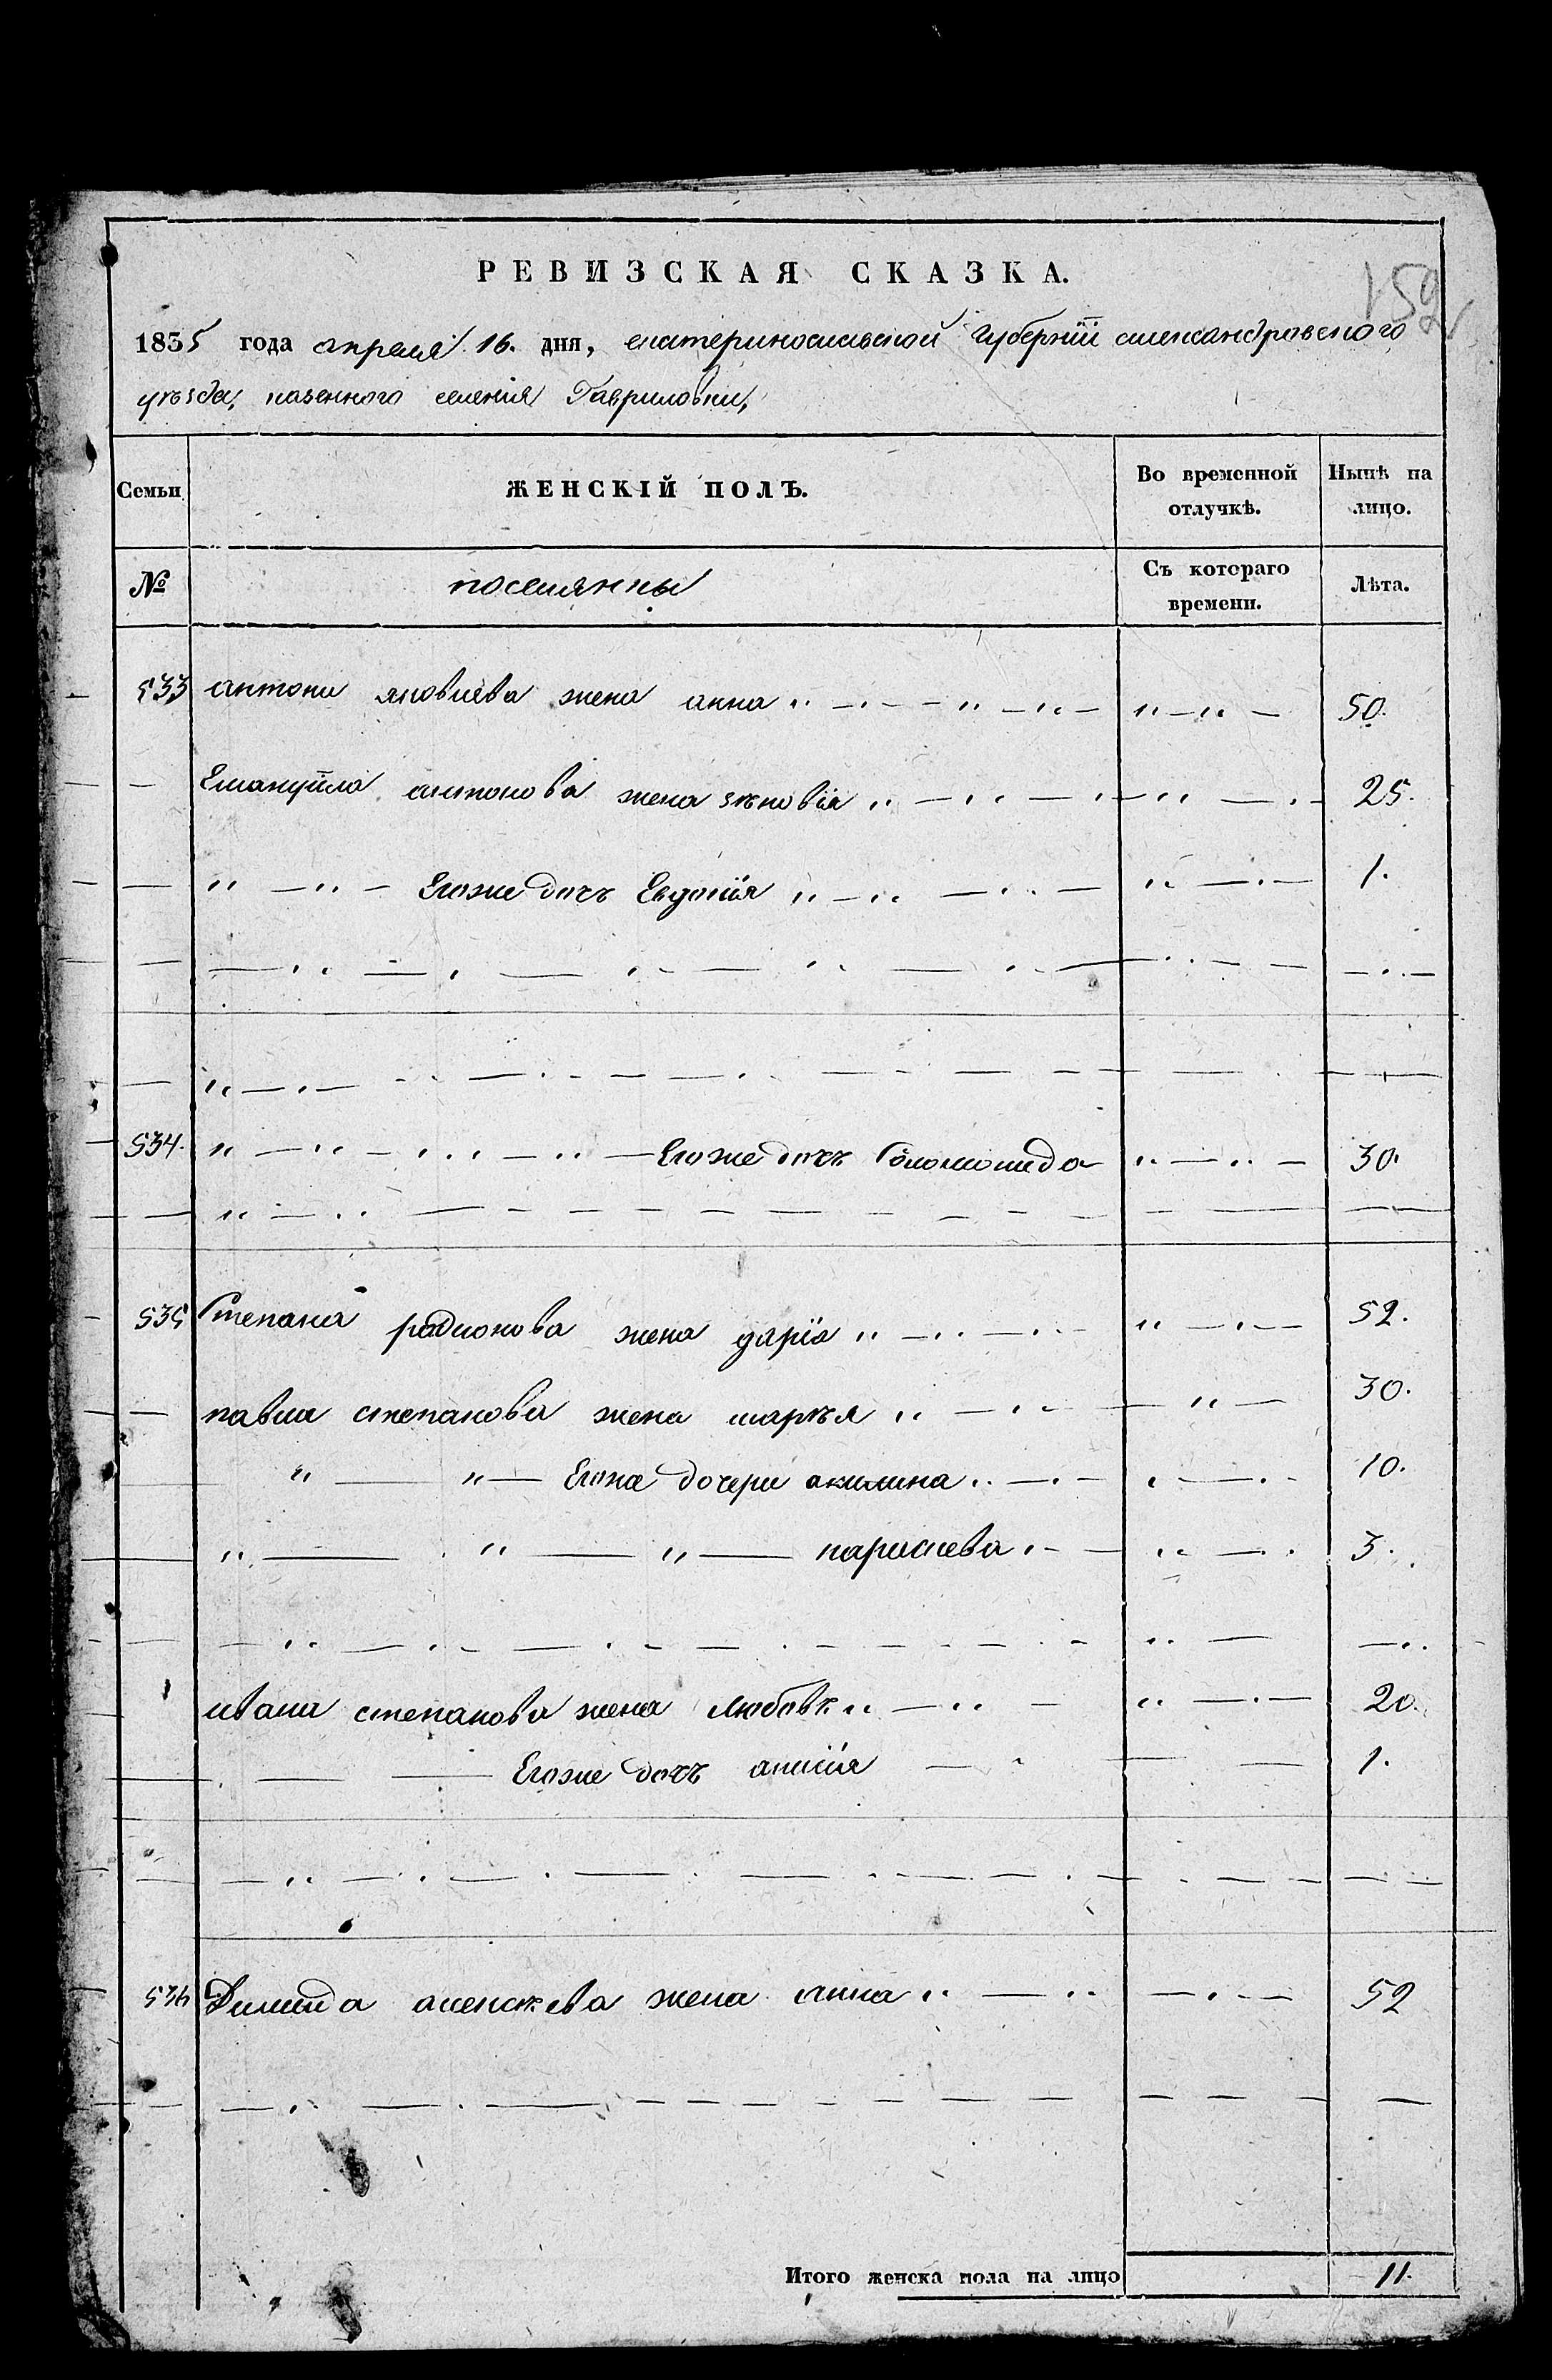 РЕВИЗСКАЯ СКАЗКА.
152
1835 года апреля 16. дня, екатериносливской Губернїи александровского
уѣзда, казенного селенїя Гавриловки,
Семьи
ЖЕНСКІЙ ПОЛЪ.
Во временной отлучкѣ.
Нынѣ на лицо.
№
поселянны
Съ котораго времени.
Лѣта.
533 антона яковлева жена анна 50.
Емануйла антонова жена зѣновїя 25.
Егоже дочъ Евдокїя 1.
534. Егоже дочъ 30.
535 Степана радионова жена дарїя 52.
павла степанова жена маръя 30.
Егоже дочери акилина 10.
параскева 3.
ивана степанова жена любовъ 20.
Егоже дочъ анисїя 1.
536 Демида алексѣева жена анна 52
Итого женска пола на лицо 11.